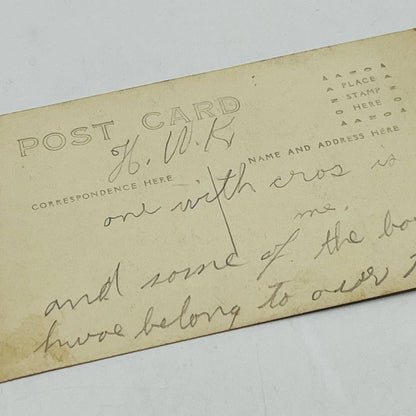 POST CARD
H. W. K
AZO
PLACE
STAMP
HERE
AZO
CORRESPONDENCE HERE
NAME AND ADDRESS HERE
one with cros is
me.
and some of the bo
hwoe belong to ower